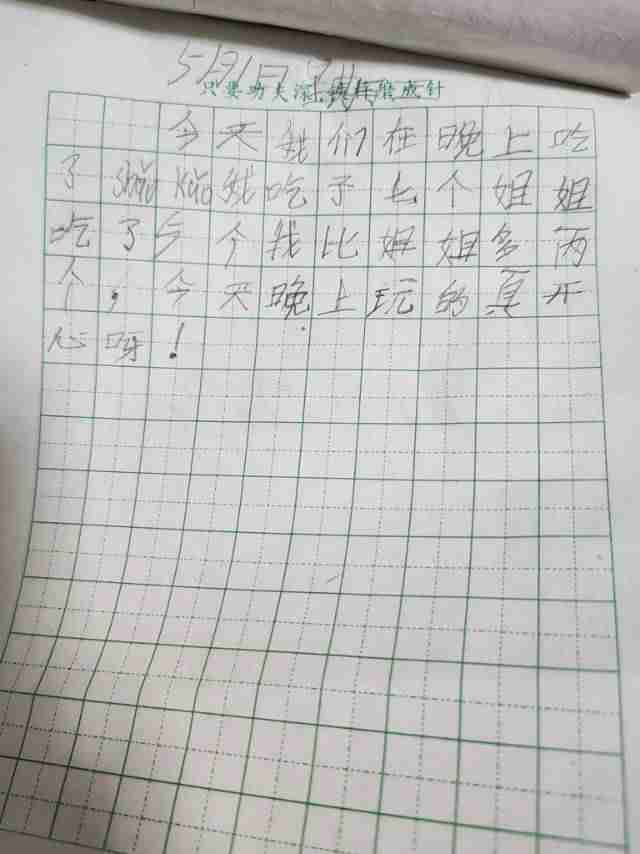 5月1日
只要功夫深,铁杵磨成针
今天我们在晚上吃
了shāo kǎo我吃了七个姐姐
吃了5个我比姐姐多两
个,今天晚上玩的真开
心呀!